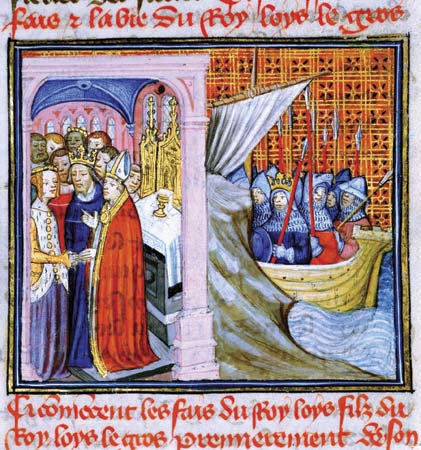 fais & la vie du Roy loys le gros
Ci cōmēcent les fais du Roy loys filz du
Roy loys le gros premierement de son